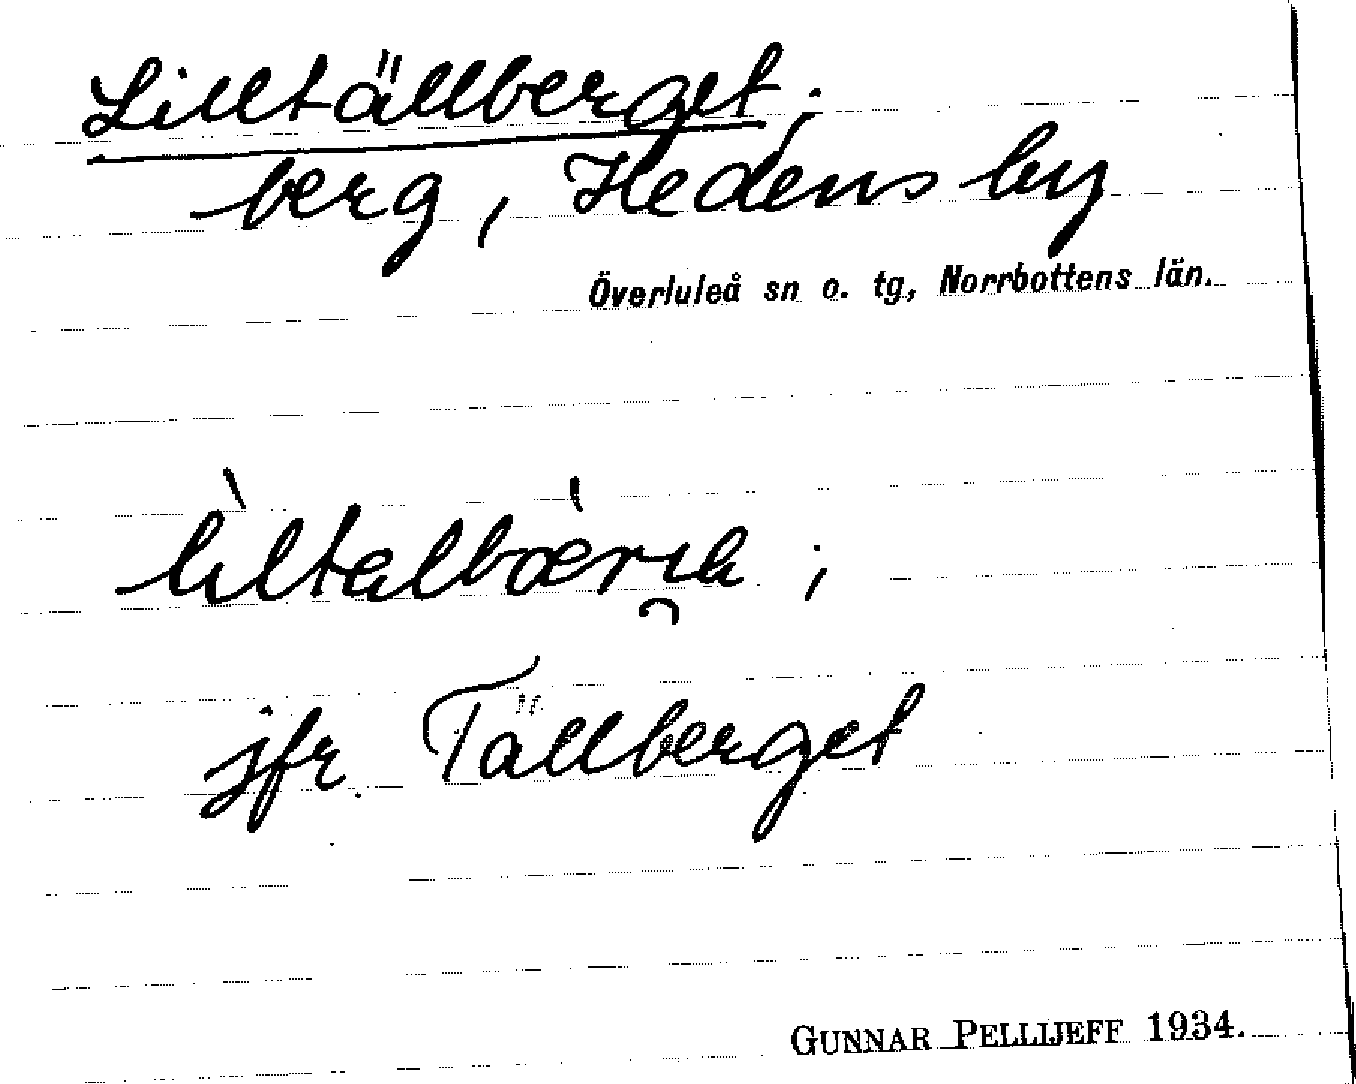 Lilltällberget;
berg, Hedens by
Överluleå sn o. tg, Norrbottens län.
jfr. Tällberget
GUNNAR PELLIJEFF 1934.